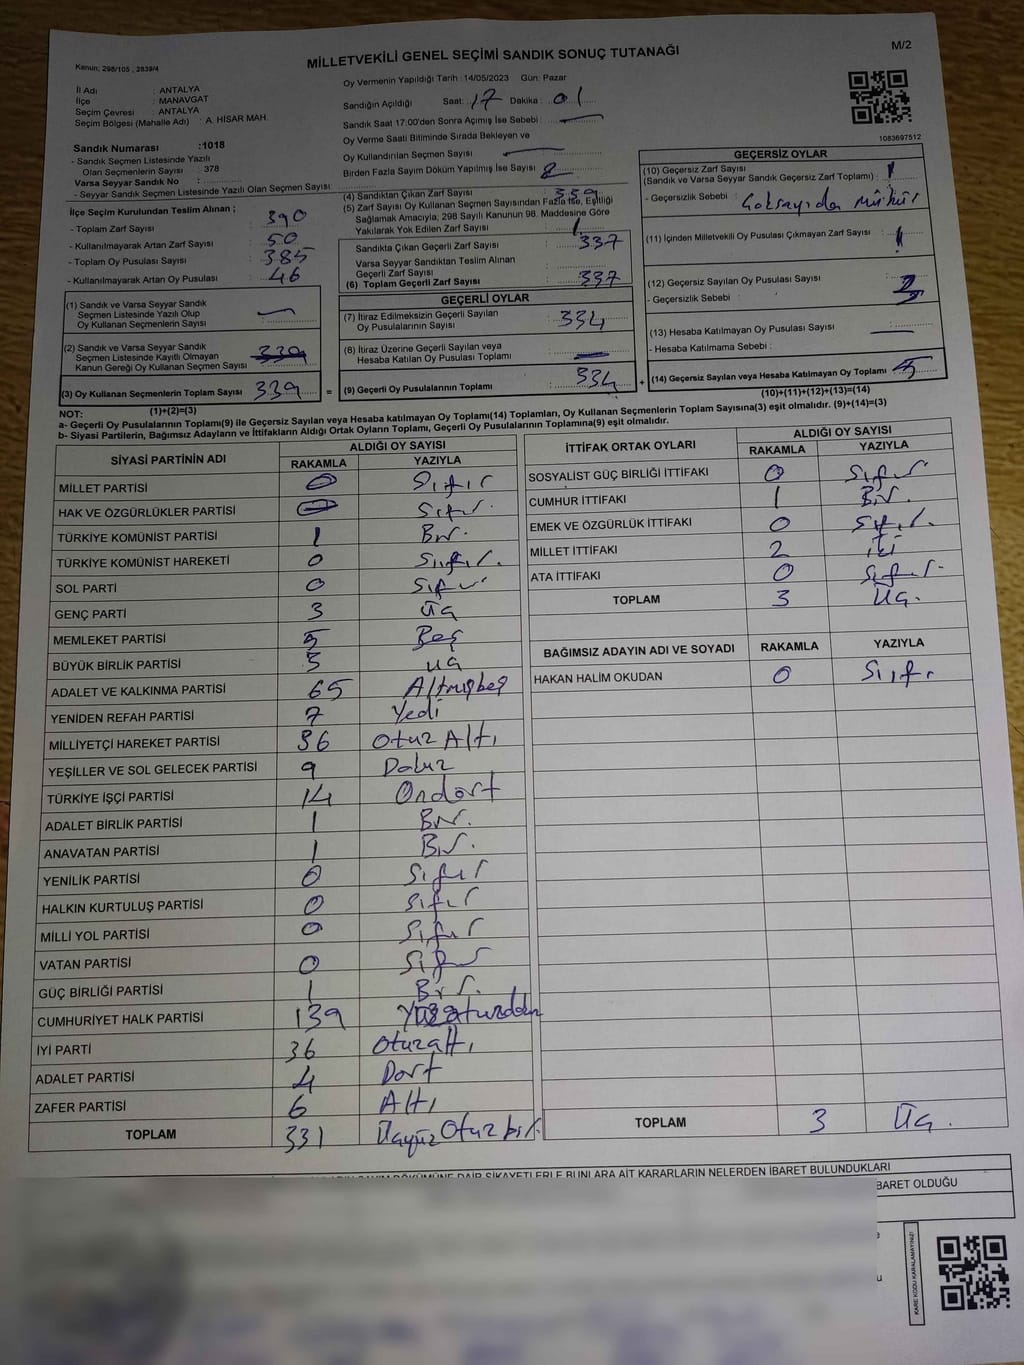 Kanun: 298/105 , 2839/4
MİLLETVEKİLİ GENEL SEÇİMİ SANDIK SONUÇ TUTANAĞI
M/2
İl Adı : ANTALYA
İlçe : MANAVGAT
Seçim Çevresi : ANTALYA
Seçim Bölgesi (Mahalle Adı) : A. HİSAR MAH.
Sandık Numarası :1018
- Sandık Seçmen Listesinde Yazılı
Olan Seçmenlerin Sayısı : 378
Varsa Seyyar Sandık No :
- Seyyar Sandık Seçmen Listesinde Yazılı Olan Seçmen Sayısı:
Oy Vermenin Yapıldığı Tarih :14/05/2023 Gün: Pazar
Sandığın Açıldığı Saat: 17 Dakika : 01
Sandık Saat 17:00'den Sonra Açımış İse Sebebi : —
Oy Verme Saati Bitiminde Sırada Bekleyen ve
Oy Kullandırılan Seçmen Sayısı : —
Birden Fazla Sayım Döküm Yapılmış İse Sayısı : 2
1083697512
İlçe Seçim Kurulundan Teslim Alınan ;
- Toplam Zarf Sayısı : 390
- Kullanılmayarak Artan Zarf Sayısı : 50
- Toplam Oy Pusulası Sayısı : 385
- Kullanılmayarak Artan Oy Pusulası : 46
(1) Sandık ve Varsa Seyyar Sandık
Seçmen Listesinde Yazılı Olup
Oy Kullanan Seçmenlerin Sayısı : —
(2) Sandık ve Varsa Seyyar Sandık
Seçmen Listesinde Kayıtlı Olmayan
Kanun Gereği Oy Kullanan Seçmen Sayısı : 339
(3) Oy Kullanan Seçmenlerin Toplam Sayısı : 339 =
(1)+(2)=(3)
(4) Sandıktan Çıkan Zarf Sayısı : 339
(5) Zarf Sayısı Oy Kullanan Seçmen Sayısından Fazla İse, Eşitliği
Sağlamak Amacıyla, 298 Sayılı Kanunun 98. Maddesine Göre
Yakılarak Yok Edilen Zarf Sayısı : 1
Sandıkta Çıkan Geçerli Zarf Sayısı : 337
Varsa Seyyar Sandıktan Teslim Alınan
Geçerli Zarf Sayısı :
(6) Toplam Geçerli Zarf Sayısı : 337
GEÇERLİ OYLAR
(7) İtiraz Edilmeksizin Geçerli Sayılan
Oy Pusulalarının Sayısı : 334
(8) İtiraz Üzerine Geçerli Sayılan veya
Hesaba Katılan Oy Pusulası Toplamı : —
(9) Geçerli Oy Pusulalarının Toplamı : 334 +
GEÇERSİZ OYLAR
(10) Geçersiz Zarf Sayısı
(Sandık ve Varsa Seyyar Sandık Geçersiz Zarf Toplamı) : 1
- Geçersizlik Sebebi :
(11) İçinden Milletvekili Oy Pusulası Çıkmayan Zarf Sayısı : 1
(12) Geçersiz Sayılan Oy Pusulası Sayısı : 3
- Geçersizlik Sebebi :
(13) Hesaba Katılmayan Oy Pusulası Sayısı : —
- Hesaba Katılmama Sebebi :
(14) Geçersiz Sayılan veya Hesaba Katılmayan Oy Toplamı : 5
(10)+(11)+(12)+(13)=(14)
NOT:
a- Geçerli Oy Pusulalarının Toplamı(9) ile Geçersiz Sayılan veya Hesaba katılmayan Oy Toplamı(14) Toplamları, Oy Kullanan Seçmenlerin Toplam Sayısına(3) eşit olmalıdır. (9)+(14)=(3)
b- Siyasi Partilerin, Bağımsız Adayların ve İttifakların Aldığı Ortak Oyların Toplamı, Geçerli Oy Pusulalarının Toplamına(9) eşit olmalıdır.
SİYASİ PARTİNİN ADI ALDIĞI OY SAYISI
RAKAMLA YAZIYLA
MİLLET PARTİSİ 0 Sıfır
HAK VE ÖZGÜRLÜKLER PARTİSİ 0 Sıfır.
TÜRKİYE KOMÜNİST PARTİSİ 1 Bir.
TÜRKİYE KOMÜNİST HAREKETİ 0 Sıfır.
SOL PARTİ 0 Sıfır
GENÇ PARTİ 3 Üç
MEMLEKET PARTİSİ 5 Beş
BÜYÜK BİRLİK PARTİSİ 3 üç
ADALET VE KALKINMA PARTİSİ 65 Altmışbeş
YENİDEN REFAH PARTİSİ 7 Yedi
MİLLİYETÇİ HAREKET PARTİSİ 36 Otuz Altı
YEŞİLLER VE SOL GELECEK PARTİSİ 9 Dokuz
TÜRKİYE İŞÇİ PARTİSİ 14 Ondört
ADALET BİRLİK PARTİSİ 1 Bir.
ANAVATAN PARTİSİ 1 Bir.
YENİLİK PARTİSİ 0 Sıfır
HALKIN KURTULUŞ PARTİSİ 0 Sıfır
MİLLİ YOL PARTİSİ 0 Sıfır
VATAN PARTİSİ 0 Sıfır
GÜÇ BİRLİĞİ PARTİSİ 1 Bir.
CUMHURİYET HALK PARTİSİ 139
İYİ PARTİ 36 Otuzaltı
ADALET PARTİSİ 4 Dört
ZAFER PARTİSİ 6 Altı
TOPLAM 331 Üçyüz Otuz bir.
İTTİFAK ORTAK OYLARI ALDIĞI OY SAYISI
RAKAMLA YAZIYLA
SOSYALİST GÜÇ BİRLİĞİ İTTİFAKI 0 Sıfır
CUMHUR İTTİFAKI 1 Bir.
EMEK VE ÖZGÜRLÜK İTTİFAKI 0 Sıfır.
MİLLET İTTİFAKI 2 iki
ATA İTTİFAKI 0 Sıfır.
TOPLAM 3 Üç.
BAĞIMSIZ ADAYIN ADI VE SOYADI RAKAMLA YAZIYLA
HAKAN HALİM OKUDAN 0 Sıfır
TOPLAM 3 Üç.
DÖKÜMÜNE DAİR ŞİKAYETLERLE BUNLARA AİT KARARLARIN NELERDEN İBARET BULUNDUKLARI
BARET OLDUĞU
KARE KODU KARALAMAYINIZ!